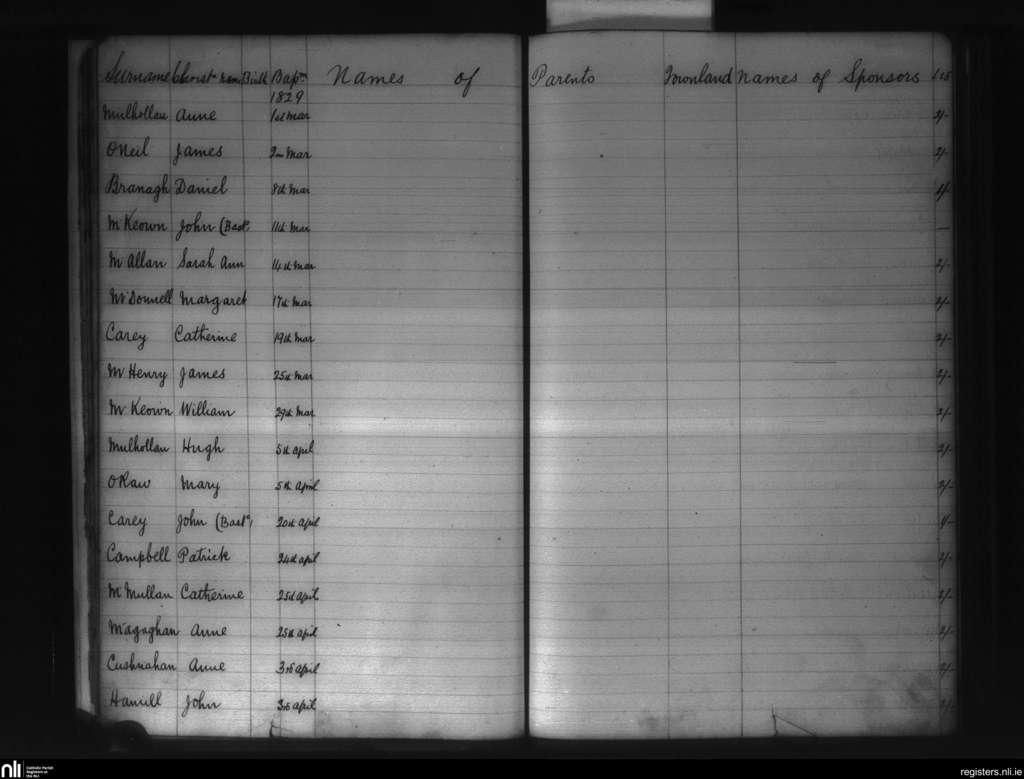 Surname Christn name Birth Bapm Names of Parents Townland names of Sponsors
1829
Mulhollan Anne 1st Mar 2/-
ONeil James 2nd Mar 2/-
Branagh Daniel 8th Mar
McKeown John (Bast) 11th Mar —
McAllan Sarah Ann 14th Mar 2/-
McDonnell Margaret 17th Mar 2/-
Carey Catherine 19th Mar 2/-
McHenry James 25th Mar 2/-
McKeown William 29th Mar 2/-
Mulhollan Hugh 5th April 2/-
ORaw Mary 5th April 2/-
Carey John (Bast) 20th April
Campbell Patrick 24th April 2/-
McMullan Catherine 25th April 2/-
Magaghan Anne 25th April 2/-
Cushnahan Anne April 2/-
Hamill John April 2/-
nli Catholic Parish Registers at the NLI
registers.nli.ie